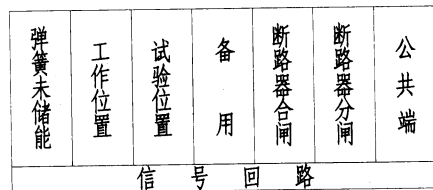 弹簧未储能
工作位置
试验位置
备用
断路器合闸
断路器分闸
公共端
信号回路